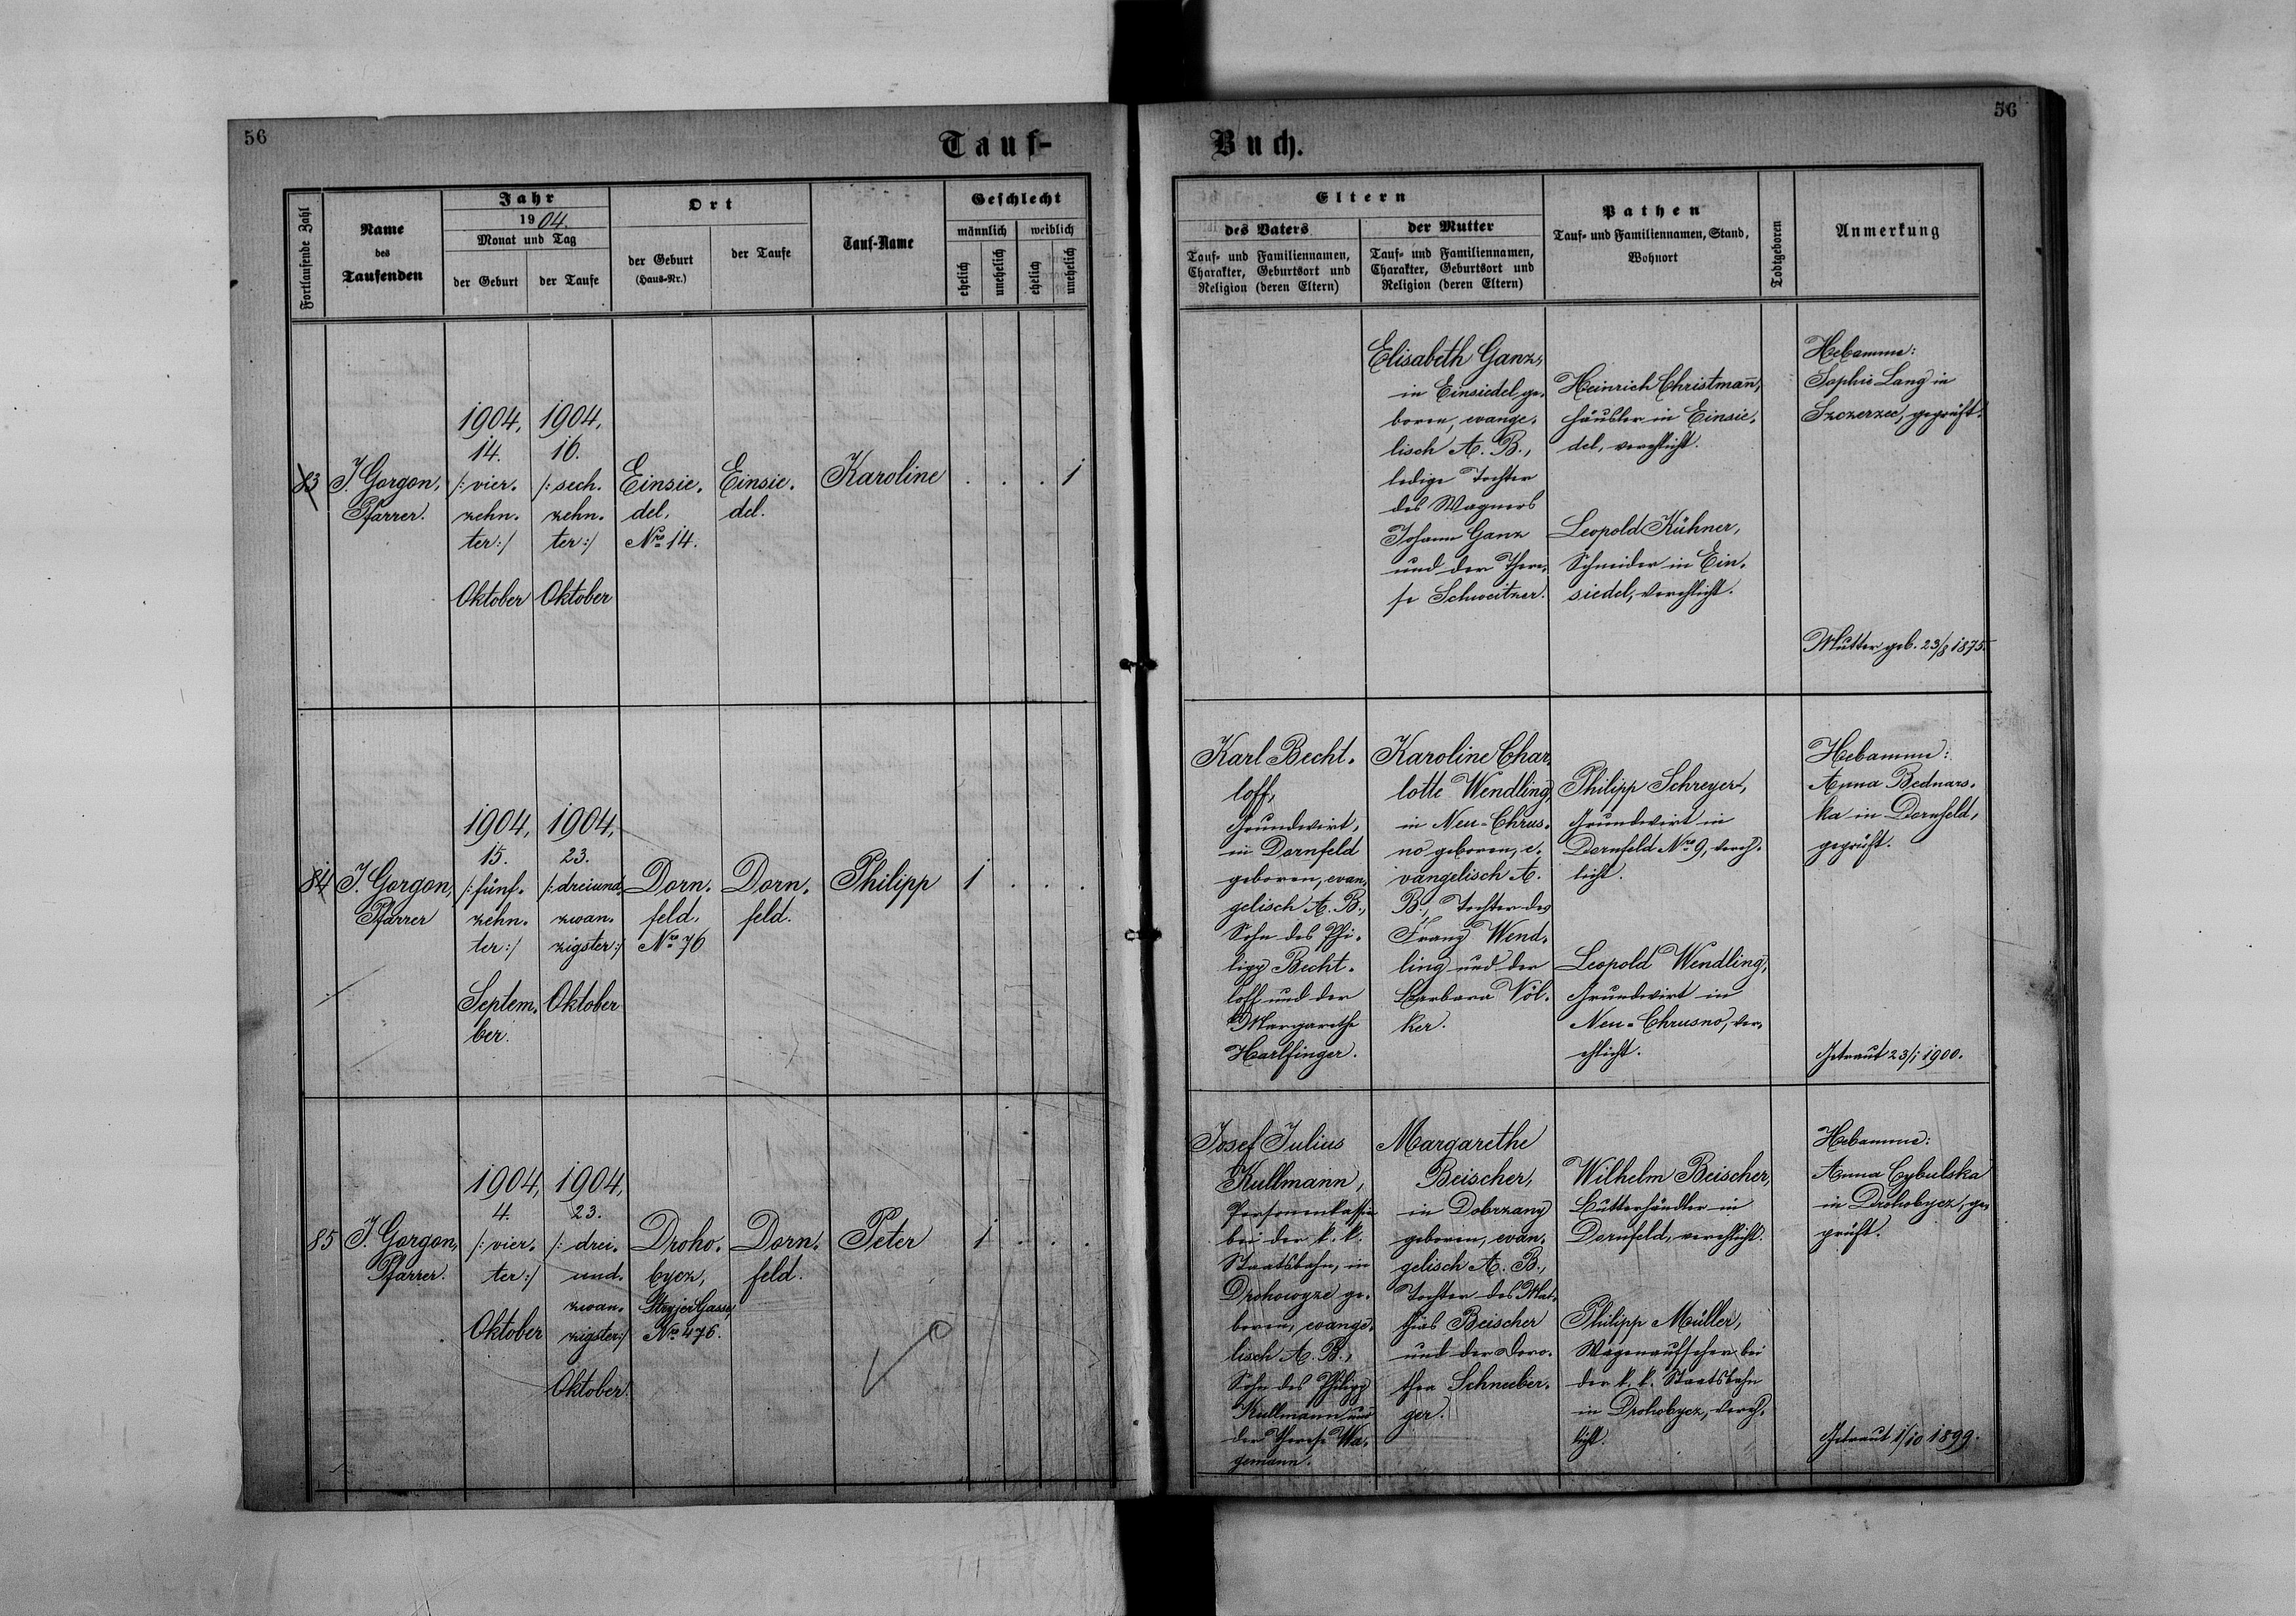 56
56
Tauf-
Buch.
Fortlaufende Zahl
Name
des
Taufenden
Jahr
1904.
Monat und Tag
der Geburt
der Taufe
Ort
der Geburt
(Haus-Nr.)
der Taufe
Tauf-Name
Geschlecht
männlich
weiblich
ehelich
unehelich
ehelich
unehelich
Eltern
des Vaters
Tauf- und Familiennamen,
Charakter, Geburtsort und
Religion (deren Eltern)
der Mutter
Tauf- und Familiennamen,
Charakter, Geburtsort und
Religion (deren Eltern)
Pathen
Tauf- und Familiennamen, Stand,
Wohnort
Todtgeboren
Anmerkung
83
J. Gorgon,
Pfarrer.
1904,
14.
/: vier-
zehn-
ter :/
Oktober
1904,
16.
/: sech-
zehn-
ter :/
Oktober
Einsie-
del,
Nro 14.
Einsie-
del.
Karoline
. . . 1
Elisabeth Ganz,
in Einsiedel ge-
boren, evange-
lisch A. B.,
ledige Tochter
des Wagners
Johann Ganz
und der There-
se Schweitzer.
Heinrich Christmañ,
Häusler in Einsie-
del, verehlicht.
Leopold Kühner,
Schneider in Ein-
siedel, verehlicht.
Hebamme:
Sophie Lang in
Szczerzec, geprüft.
Mutter geb. 23/8 1875.
84
J. Gorgon,
Pfarrer
1904,
15.
/: fünf-
zehn-
ter :/
Septem-
ber.
1904,
23.
/: dreiund-
zwan-
zigster :/
Oktober
Dorn-
feld,
Nro 76
Dorn-
feld.
Philipp
1 . . .
Karl Becht-
loff,
Grundwirt,
in Dornfeld
geboren, evan-
gelisch A. B.,
Sohn des Phi-
lipp Becht-
loff und der
Margarethe
Harlfinger.
Karoline Char-
lotte Wendling,
in Neu-Chrus-
no geboren, e-
vangelisch A.
B., Tochter des
Franz Wend-
ling und der
Barbara Völ-
ker.
Philipp Schreyer,
Grundwirt in
Dornfeld Nro 9, vereh-
licht.
Leopold Wendling,
Grundwirt in
Neu-Chrusno, ver-
ehlicht.
Hebamme:
Anna Bednars-
ka in Dornfeld,
geprüft.
Getraut 23/1 1900.
85
J. Gorgon,
Pfarrer.
1904,
4.
/: vier-
ter :/
Oktober
1904,
23.
/: drei-
und-
zwan-
zigster :/
Oktober.
Droho-
bycz,
Stryjer Gasse,
Nro 476.
Dorn-
feld.
Peter
1 . . .
Josef Julius
Kullmann,
Personenkassier
bei der k. k.
Staatsbahn, in
Drohowyze ge-
boren, evange-
lisch A. B.,
Sohn des Philipp
Kullmann und
der Therese Wa-
gemann.
Margarethe
Beischer,
in Dobrzany
geboren, evan-
gelisch A. B.,
Tochter des Mat-
thias Beischer
und der Doro-
thea Schneeber-
ger.
Wilhelm Beischer,
Butterhändler in
Dornfeld, verehlicht.
Philipp Müller,
Wagenaufseher bei
der k. k. Staatsbahn
in Drohobycz, vereh-
licht.
Hebamme:
Anna Cybulska
in Drohobycz, ge-
prüft.
Getraut 1/10 1899.